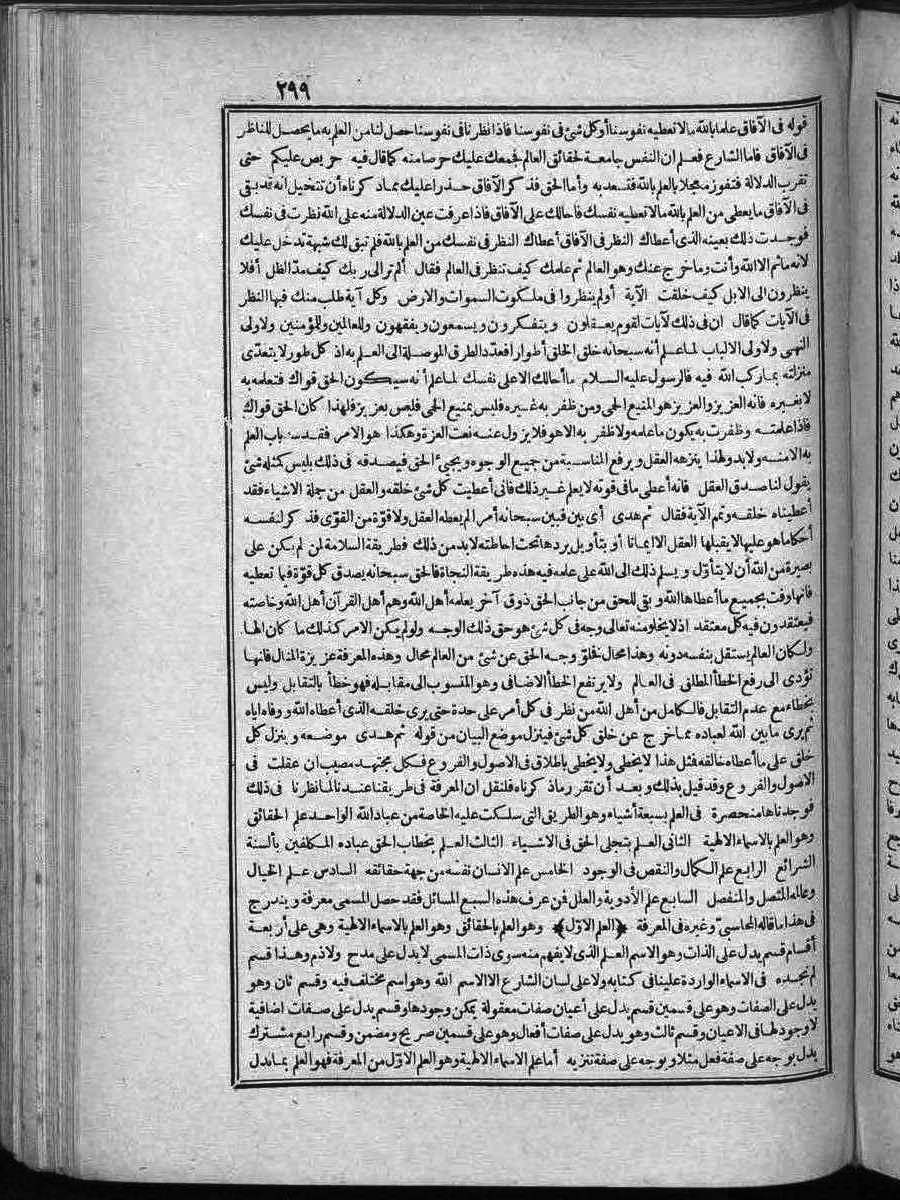 ٢٩٩
قوله فى الآفاق علما بالله مالا تعطيه نفوسنا أوكل شئ فى نفوسنا فاذا نظرنا فى نفوسنا حصل لنا من العلم به ما يحصل للناظر
فى الآفاق فاما الشارع فعلم ان النفس جامعة لحقائق العالم فجمعك عليك حرصا منه كما قال فيه حريص عليكم حتى
تقرب الدلالة فتفوز معجلا بالعلم بالله فتسعد به وأما الحق فذكر الآفاق حذرا عليك مما ذكرناه أن تتخيل انه قد بقى
فى الآفاق ما يعطى من العلم بالله مالا تعطيه نفسك فاحالك على الآفاق فاذا عرفت عين الدلالة منه على الله نظرت فى نفسك
فوجدت ذلك بعينه الذى أعطاك النظر فى الآفاق أعطاك النظر فى نفسك من العلم بالله فلم تبق لك شبهة تدخل عليك
لانه ماثم الا الله وأنت وما خرج عنك وهو العالم ثم علمك كيف تنظر فى العالم فقال ألم تر الى ربك كيف مد الظل أفلا
ينظرون الى الابل كيف خلقت الآية أولم ينظروا فى ملكوت السموات والارض وكل آية طلب منك فيها النظر
فى الآيات كما قال ان فى ذلك لآيات لقوم يعقلون ويتفكرون ويسمعون ويفقهون وللعالمين وللمؤمنين ولاولى
النهى ولاولى الالباب لما علم أنه سبحانه خلق الخلق أطوارا فعدد الطرق الموصلة الى العلم به اذ كل طور لا يتعدى
منزلته بما ركب الله فيه فالرسول عليه السلام ما أحالك الا على نفسك لما علم أنه سيكون الحق قواك فتعلمه به
لا بغيره فانه العزيز والعزيز هو المنيع الحمى ومن ظفر به غيره فليس بمنيع الحمى فليس بعزيز فلهذا كان الحق قواك
فاذا علمته وظفرت به يكون ما علمه ولا ظفر به الا هو فلا يزول عنه نعت العزة وهكذا هو الامر فقد سد باب العلم
به الا منه ولا بد ولهذا ينزهه العقل ويرفع المناسبة من جميع الوجوه ويجئ الحق فيصدقه فى ذلك بليس كمثله شئ
يقول لنا صدق العقل فانه أعطى ما فى قوته لا يعلم غير ذلك فانى أعطيت كل شئ خلقه والعقل من جملة الاشياء فقد
أعطيناه خلقه وتمم الآية فقال ثم هدى أى بين فبين سبحانه أمرا لم يعطه العقل ولا قوة من القوى فذكر لنفسه
أحكاما هو عليها لا يقبلها العقل الا ايمانا أو بتأويل يردها تحت احاطته لا بد من ذلك فطريقة السلامة لمن لم يكن على
بصيرة من الله أن لا يتأول ويسلم ذلك الى الله على علمه فيه هذه طريقة النجاة فالحق سبحانه يصدق كل قوة فيما تعطيه
فانها وفت بجميع ما أعطاها الله وبقى للحق من جانب الحق ذوق آخر يعلمه أهل الله وهم أهل القرآن أهل الله وخاصته
فيعتقدون فيه كل معتقد اذ لا يخلو منه تعالى وجه فى كل شئ هو حق ذلك الوجه ولو لم يكن الامر كذلك ما كان الها
ولكان العالم يستقل بنفسه دونه وهذا محال فخلو وجه الحق عن شئ من العالم محال وهذه المعرفة عزيزة المنال فانها
تؤدى الى رفع الخطأ المطلق فى العالم ولا يرتفع الخطأ الاضافى وهو المنسوب الى مقابله فهو خطأ بالتقابل وليس
بخطاء مع عدم التقابل فالكامل من أهل الله من نظر فى كل أمر على حدة حتى يرى خلقه الذى أعطاه الله ووفاه اياه
ثم يرى ما بين الله لعباده مما خرج عن خلق كل شئ فينزل موضع البيان من قوله ثم هدى موضعه وينزل كل
خلق على ما أعطاه خالقه فمثل هذا لا يخطى ولا يخطى باطلاق فى الاصول والفروع فكل مجتهد مصيب ان عقلت فى
الاصول والفروع وقد قيل بذلك وبعد أن تقرر ما ذكرناه فلنقل ان المعرفة فى طريقنا عندنا لما نظرنا فى ذلك
فوجدناها منحصرة فى العلم بسبعة أشياء وهو الطريق التى سلكت عليه الخاصة من عباد الله الواحد علم الحقائق
وهو العلم بالاسماء الالهية الثانى العلم بتجلى الحق فى الاشياء الثالث العلم بخطاب الحق عباده المكلفين بألسنة
الشرائع الرابع علم الكمال والنقص فى الوجود الخامس علم الانسان نفسه من جهة حقائقه السادس علم الخيال
وعالمه المتصل والمنفصل السابع علم الأدوية والعلل فن عرف هذه السبع المسائل فقد حصل المسمى معرفة ويندرج
فى هذا ما قاله المحاسبى وغيره فى المعرفة ﴿العلم الاول﴾ وهو العلم بالحقائق وهو العلم بالاسماء الالهية وهى على أربعة
أقسام قسم يدل على الذات وهو الاسم العلم الذى لا يفهم منه سوى ذات المسمى لا يدل على مدح ولا ذم وهذا قسم
لم نجده فى الاسماء الواردة علينا فى كتابه ولا على لسان الشارع الا الاسم الله وهو اسم مختلف فيه وقسم ثان وهو
يدل على الصفات وهو على قسمين قسم يدل على أعيان صفات معقولة يمكن وجودها وقسم يدل على صفات اضافية
لا وجود لها فى الاعيان وقسم ثالث وهو يدل على صفات أفعال وهو على قسمين صريح ومضمن وقسم رابع مشترك
يدل بوجه على صفة فعل مثلا وبوجه على صفة تنزيه أما علم الاسماء الالهية وهو العلم الاول من المعرفة فهو العلم بما تدل